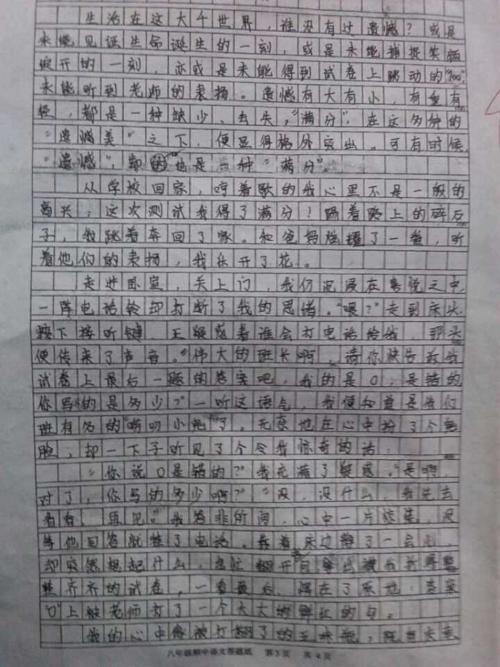 生活在这大千世界，谁没有过遗憾？或是
未能见证生命诞生的一刻，或是未能捕捉笑颜
绽开的一刻，亦或是未能得到试卷上跳动的“100”，
未能听到老师的表扬。遗憾有大有小，有重有
轻，都是一种缺少、丢失，“满分”在这多种的
“遗憾美”之下，便显得格外突出。可有时候，
“遗憾”，却也是一种“满分”。
从学校回家，哼着歌的我心里不是一般的
高兴：这次测试我得了满分！踢着路上的碎石
子，我跳着奔回了家。和爸妈炫耀了一番，听
着他们的表扬，我乐开了花。
走进卧室，关上门，我仍沉浸在喜悦之中，
一阵电话铃却打断了我的思绪。“喂？”走到床头
按下接听键，正疑惑着谁会打电话给我，那头
便传来了声音。“伟大的班长啊，请你快告诉我
试卷上最后一题的答案吧，我的是0，是错的，
你写的是多少？”一听这语气，我便知道是我们
班有名的
脸，却一下子听见了个令我惊奇的话
“你说0是错的？”我充满了疑惑。“是啊，
对了，你写的多少啊？”“没，没什么，我先去
看看，再见。”我答非所问，心中一片慌乱，没
等他回答就挂了电话。
却突然想起什么，
整齐齐的试卷。一
“0”上被老师打了一个大大的鲜红的勾。
我的心中像被打翻了的五味瓶，
八年级期中语文答题纸 第3页 共4页